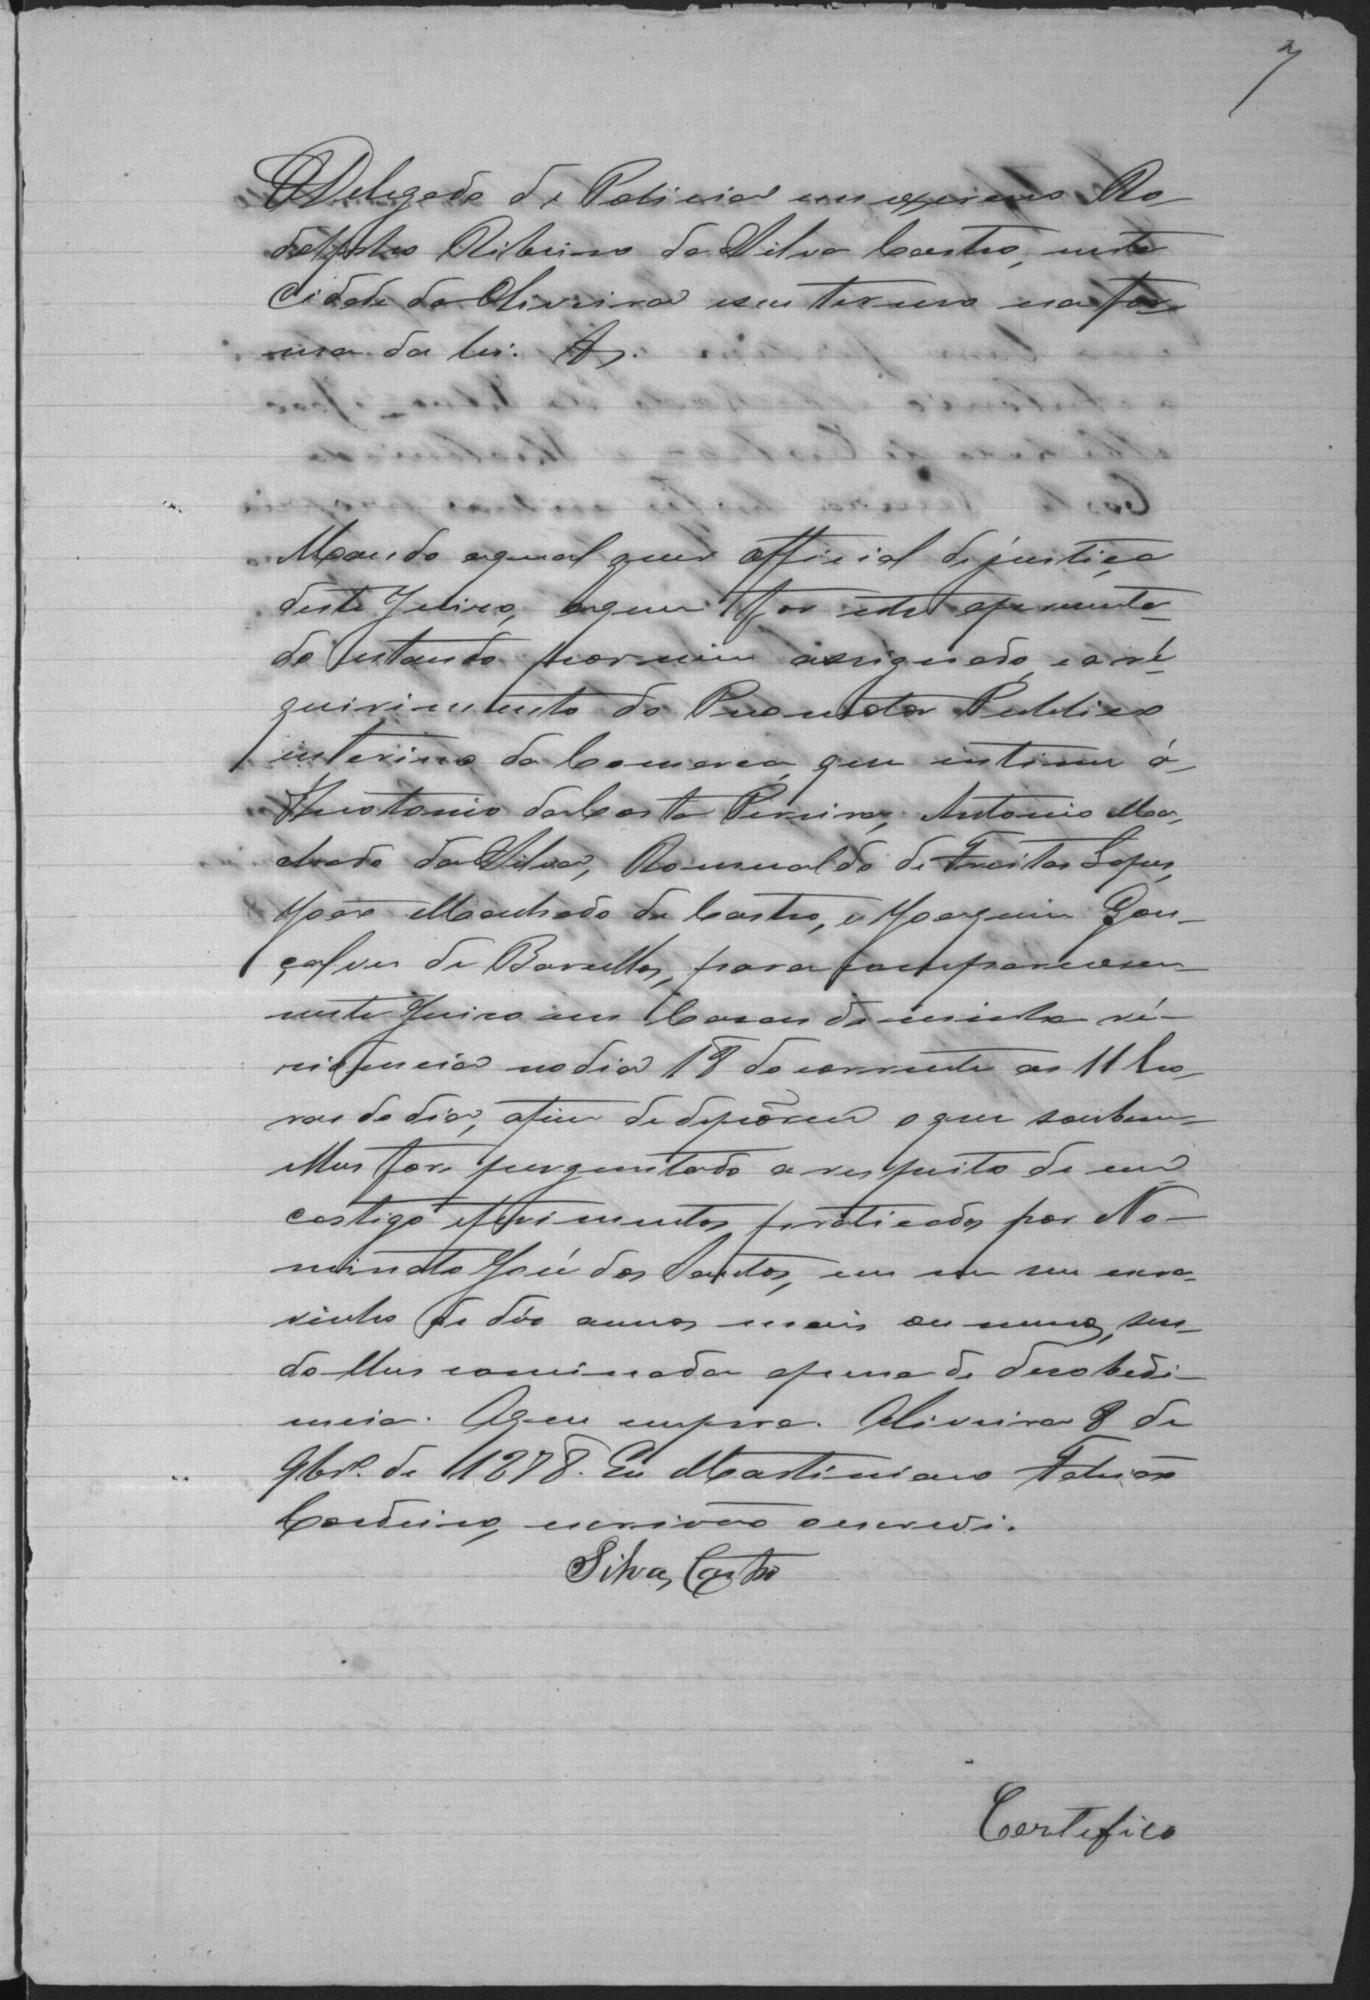 7
O Delegado de Policia em exercicio Ro-
dolpho Ribeiro da Silva Castro, nesta
Cidade da Oliveira e seu termo na for-
ma da lei. &.
Mando a qual quer official de justiça
deste Juizo, a quem for este aprezenta-
do estando por mim assignado, e a re-
quirimento do Promotor Publico
interino da Comarca, que intime á
Theotonio da Costa Pereira, Antonio Ma-
chado da Silva, Romualdo de Freitas Lopes,
João Machado de Castro, e Joaquim Gon-
çalves de Barcellos, para comparecerem
neste Juizo em Casas de minha re-
zidencia no dia 18 do corrente as 11 ho-
ras do dia, afim de depôrem o que souberem
e lhes for perguntado a respeito de um
castigo e ferimentos praticados por No-
minato José dos Santos, em um seu escra-
vinho de dés annos mais ou menos, sen-
do lhes cominada a pena de desobedi-
encia. O que cumpra. Oliveira 8 de
9brº. de 1878. Eu Martiniano
Cordeiro, escrivão o escrevi.
Silva Castro
Certefico